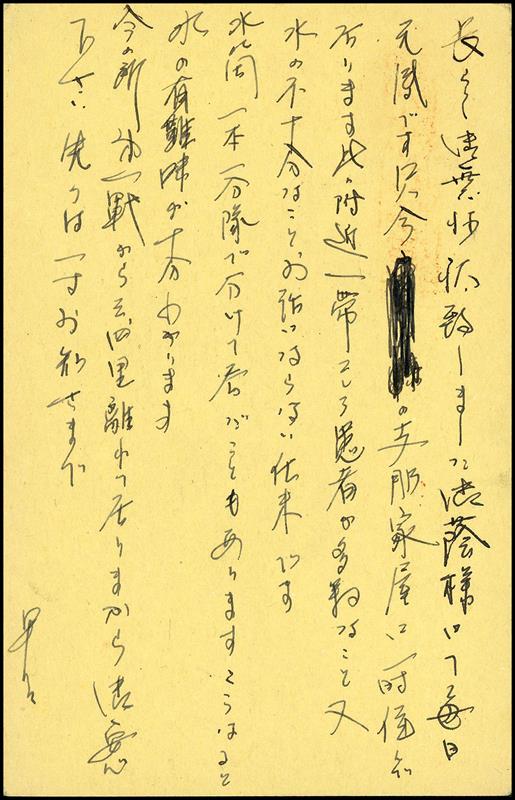 長らく御無沙汰致しました御蔭様にて毎日
元気です只今の支那家屋に一時住んで
居ります此の附近一帯コレラ患者が多数なこと又
水の不十分なことお話にならない仕末です
水札筒一本一分隊で分けて呑むこともあります こうなると
水の有難味が十分わかります
今の所第一戦から三、四里離れて居りますから御安心
下さい 先づは一寸お知らせまで
早々